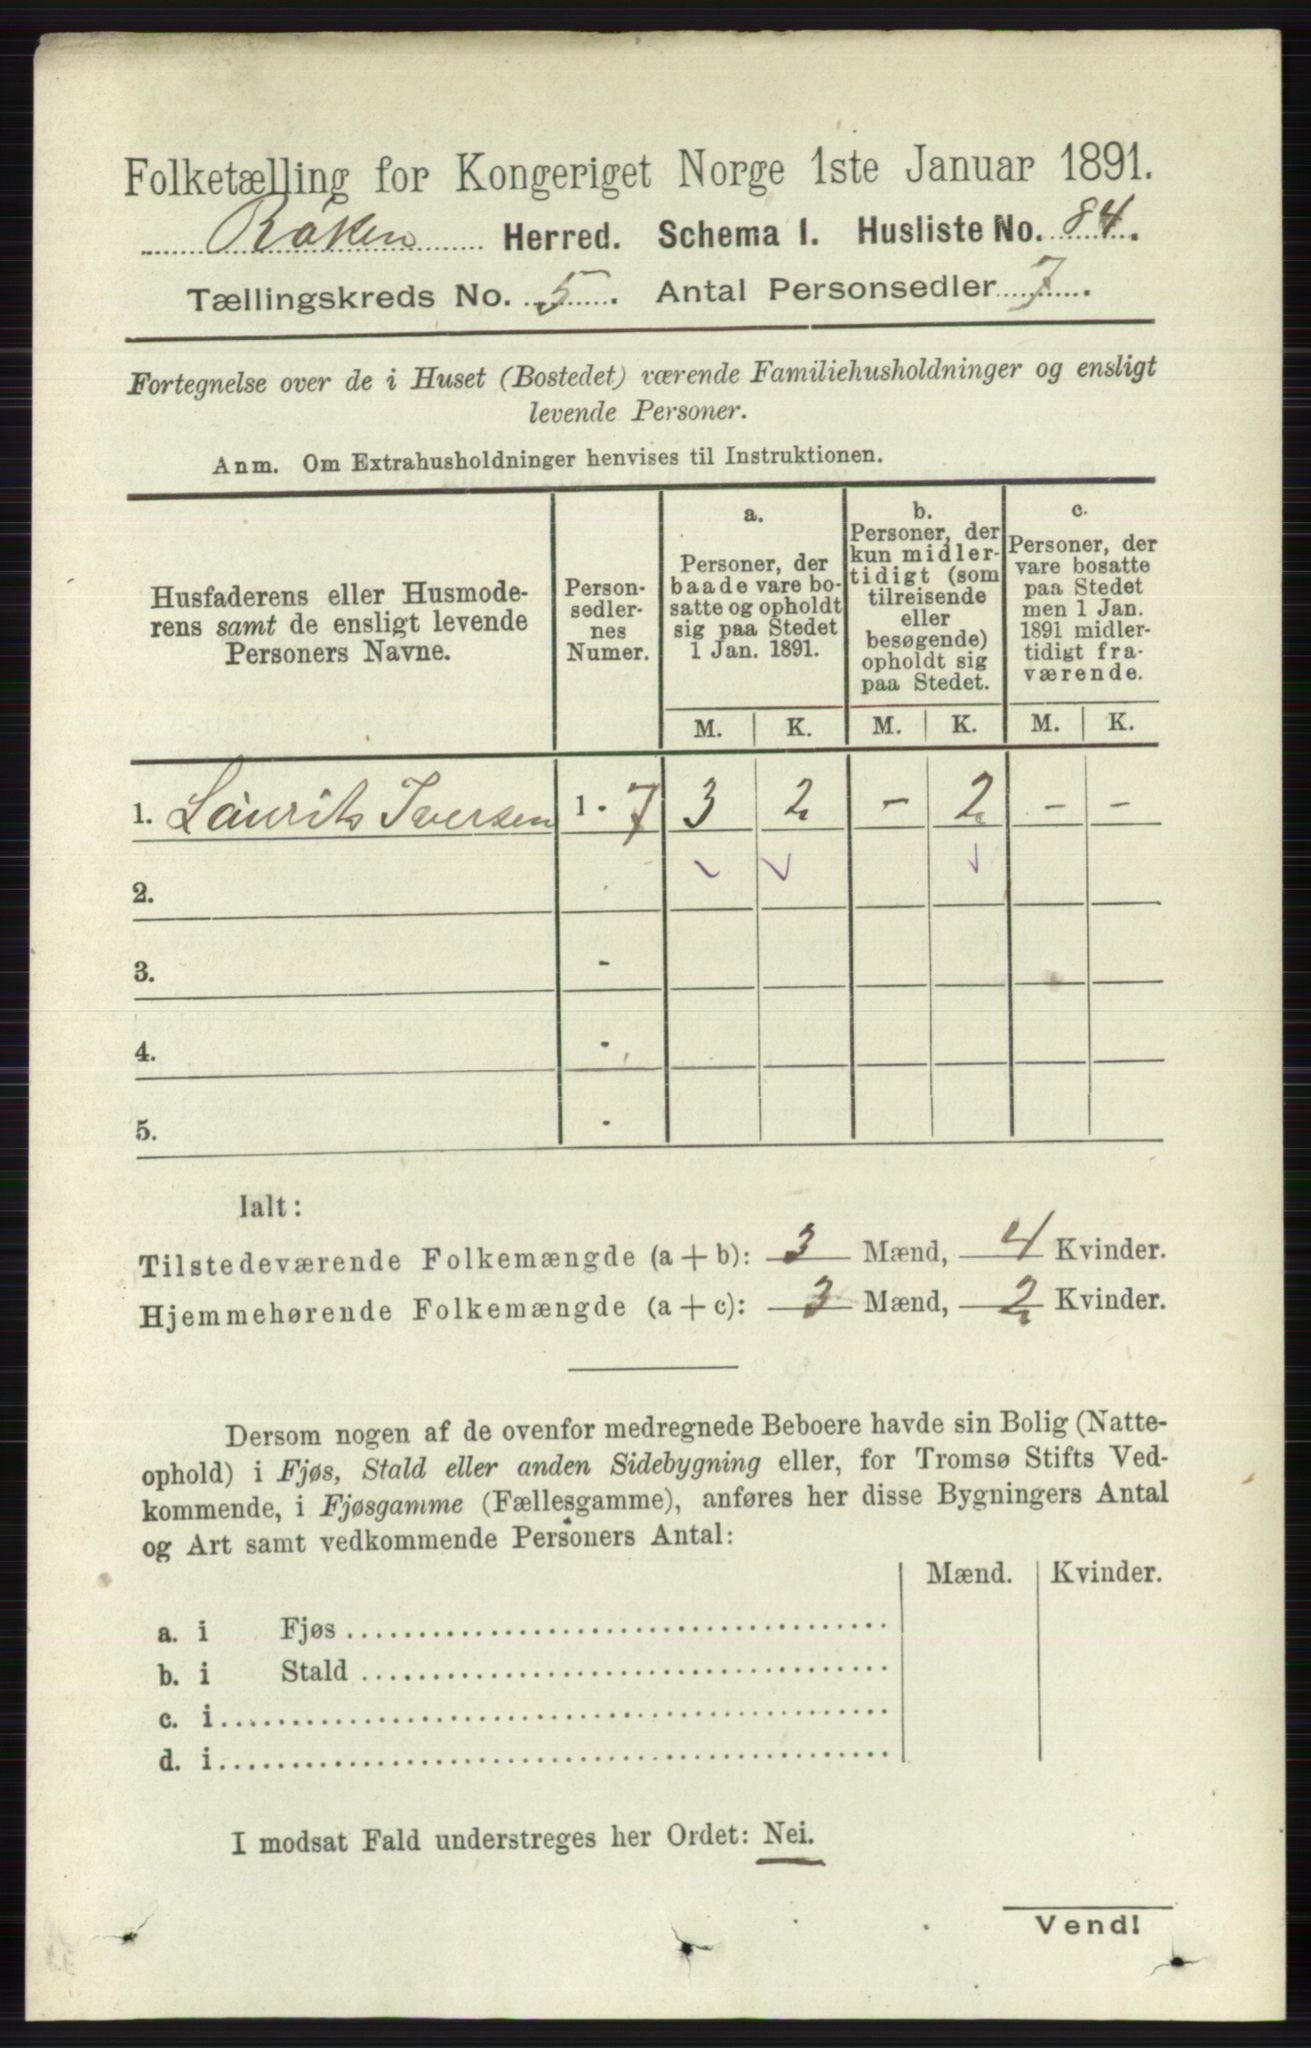 Folketælling for Kongeriget Norge 1ste Januar 1891.
Röken Herred. Schema I. Husliste No. 84.
Tællingskreds No. 5. Antal Personsedler 7.
Fortegnelse over de i Huset (Bostedet) værende Familiehusholdninger og ensligt
levende Personer.
Anm. Om Extrahusholdninger henvises til Instruktionen.
Husfaderens eller Husmode-
rens samt de ensligt levende
Personers Navne.
Person-
sedler-
nes
Numer.
a.
Personer, der
baade vare bo-
satte og opholdt
sig paa Stedet
1 Jan. 1891.
b.
Personer, der
kun midler-
tidigt (som
tilreisende
eller
besøgende)
opholdt sig
paa Stedet.
c.
Personer, der
vare bosatte
paa Stedet
men 1 Jan.
1891 midler-
tidigt fra-
værende.
M. K. M. K. M. K.
1. Laurits Iversen 1 - 7 3 2 - 2 - -
2.
3. -
4. -
5. -
Ialt:
Tilstedeværende Folkemængde (a + b): 3 Mænd, 4 Kvinder.
Hjemmehørende Folkemængde (a + c): 3 Mænd, 2 Kvinder.
Dersom nogen af de ovenfor medregnede Beboere havde sin Bolig (Natte-
ophold) i Fjøs, Stald eller anden Sidebygning eller, for Tromsø Stifts Ved-
kommende, i Fjøsgamme (Fællesgamme), anføres her disse Bygningers Antal
og Art samt vedkommende Personers Antal:
Mænd. Kvinder.
a. i Fjøs
b. i Stald
c. i
d. i
I modsat Fald understreges her Ordet: Nei.
Vend!